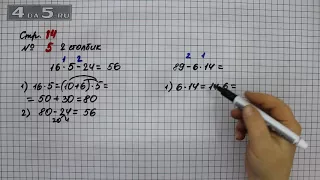 4DA5.RU
Стр. 14
№ 5 2 столбик
1 2
16·5-24 = 56
1) 16·5=(10+6)·5=
= 50+30=80
2) 80-24=56
20 4
2 1
89-6·14=
1) 6·14=14·6=